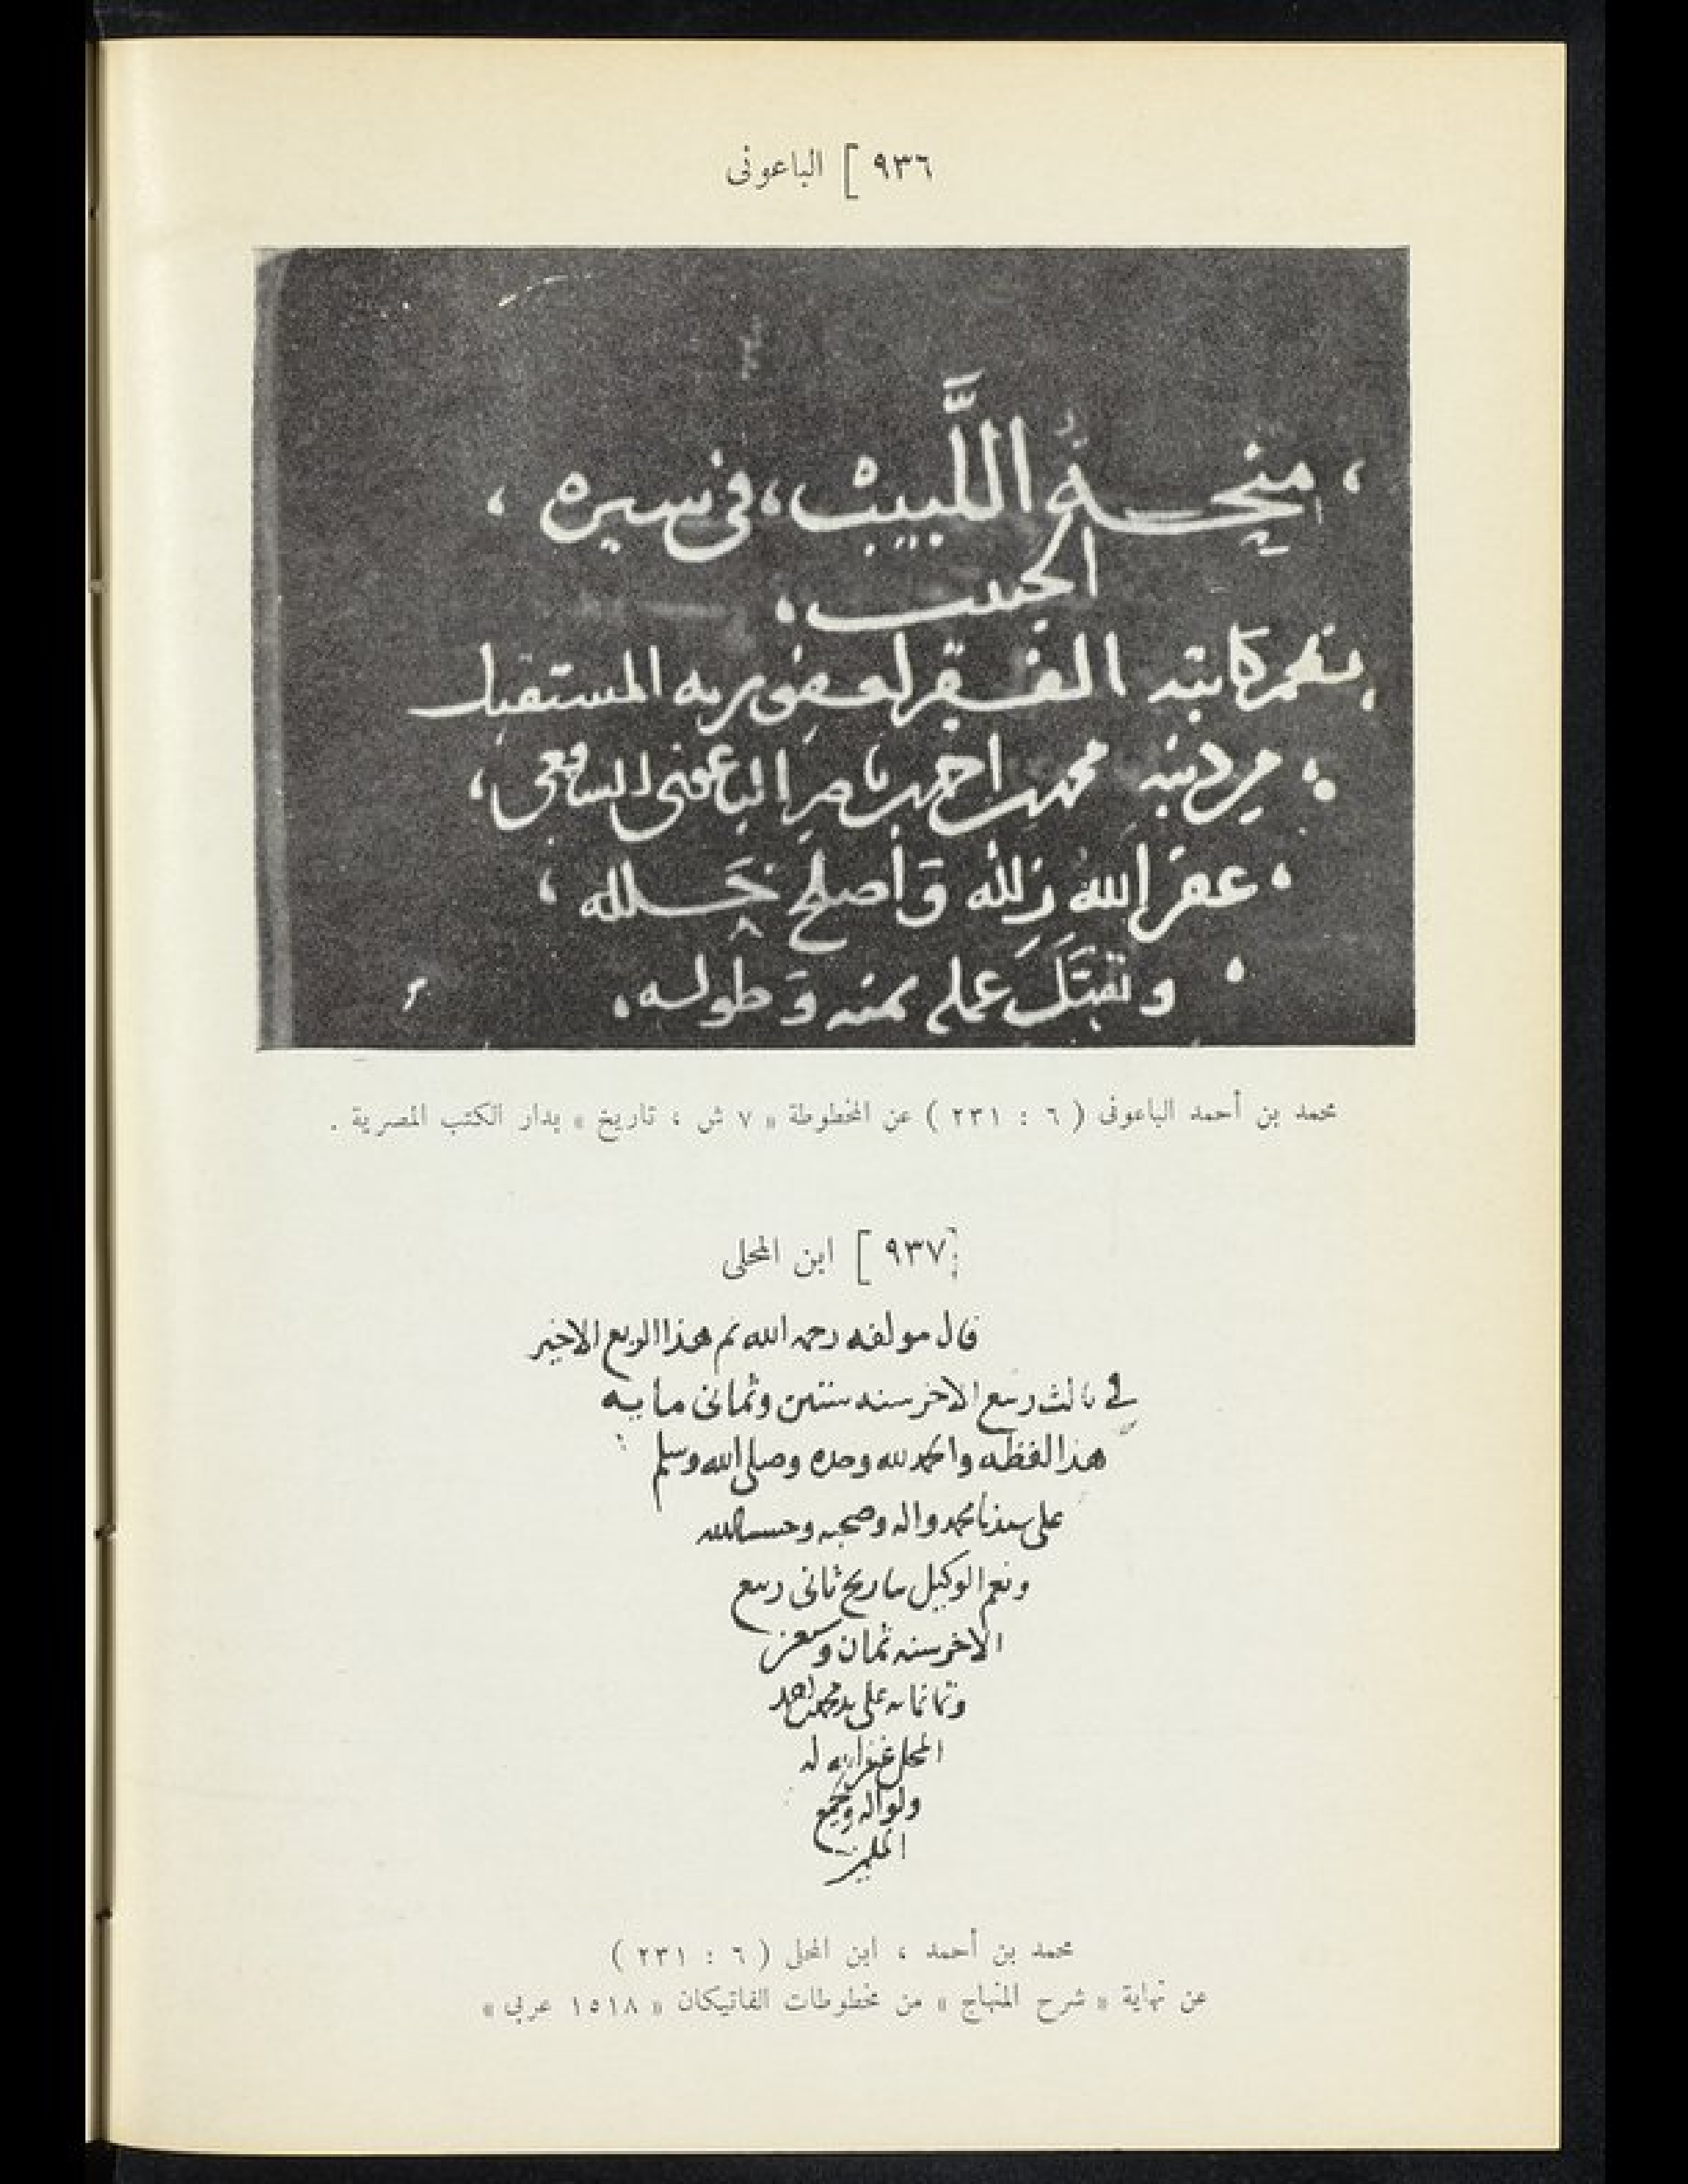 ٩٣٦ [ الباعونى
منحة اللبيب، فى سيرة
الحبيب
كاتبه الفقير لعفو ربه المستقيل
من ذنبه محمد احمد ناصر الباعونى الشافعى
غفر الله زلله وأصلح خلله
وتقبل عمله بمنه وطوله
محمد بن أحمد الباعونى ( ٦ : ٢٣١ ) عن المخطوطة « ٧ ش ، تاريخ » بدار الكتب المصرية .
٩٣٧ [ ابن المحلى
قال مولفه رحمه الله تم هذا الربع الاخير
في ثالث ربيع الاخر سنه ستين وثمانى مايه
هذا لفظه والحمد لله وحده وصلى الله وسلم
على سيدنا محمد واله وصحبه وحسبنا الله
ونعم الوكيل بتاريخ ثانى ربيع
الاخر سنه ثمان وسبعين
وثمانمايه على يد محمد بن احمد
المحلى غفر الله له
ولوالديه ولجميع
المسلمين
محمد بن أحمد ، ابن المحلى ( ٦ : ٢٣١ )
عن نهاية « شرح المنهاج » من مخطوطات الفاتيكان « ١٥١٨ عربى »